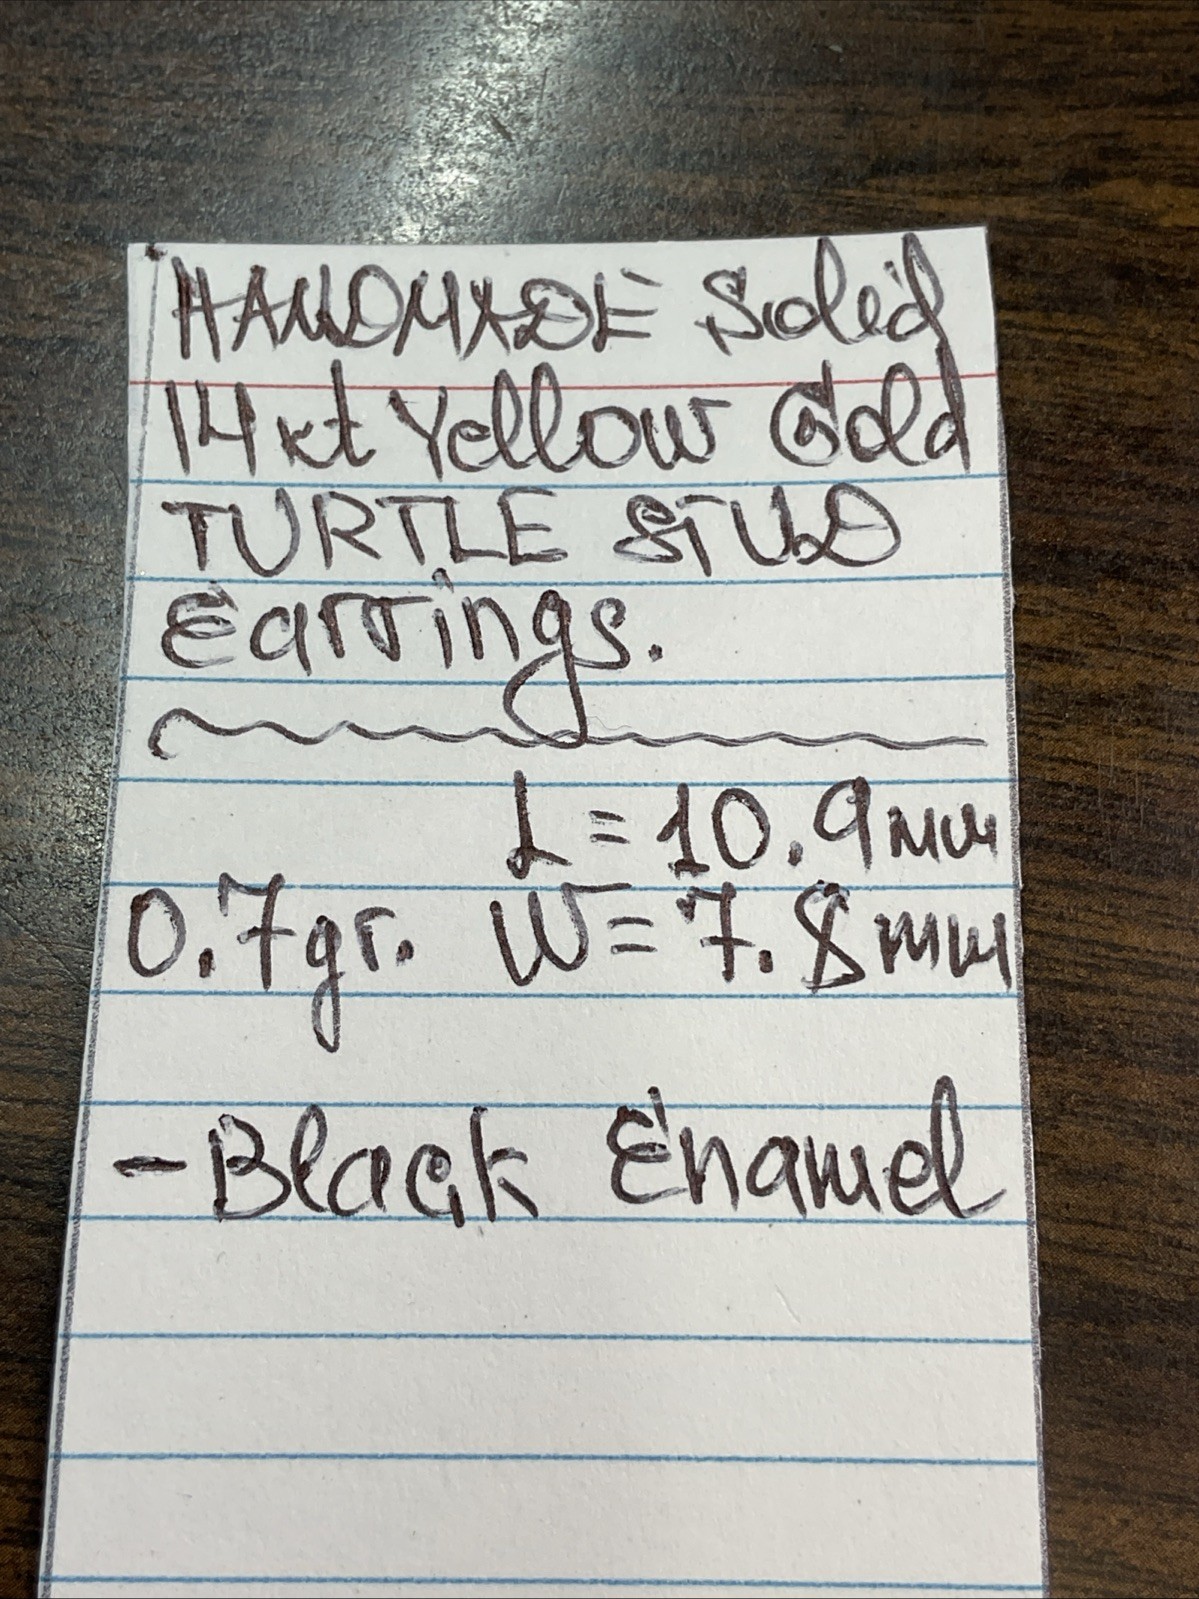 HANDMADE Solid
14kt Yellow Gold
TURTLE STUD
Earrings.
L = 10.9mm
0.7gr. W = 7.8mm
- Black Enamel